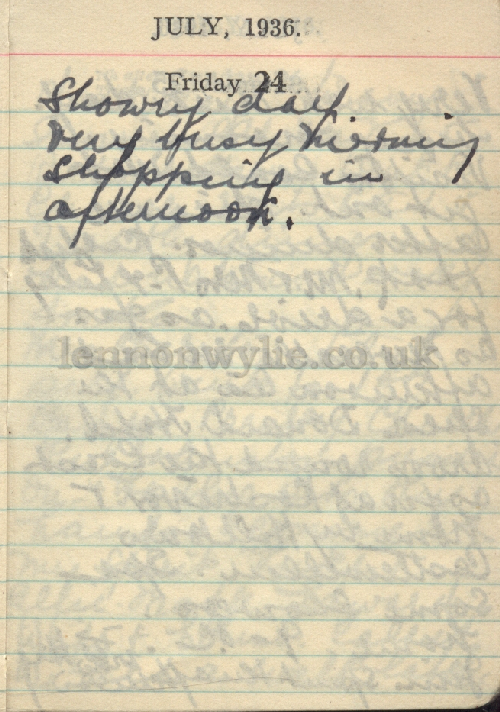 JULY, 1936.
Friday 24
Showry day
Very busy morning
Shopping in
afternoon.
lennonwylie.co.uk